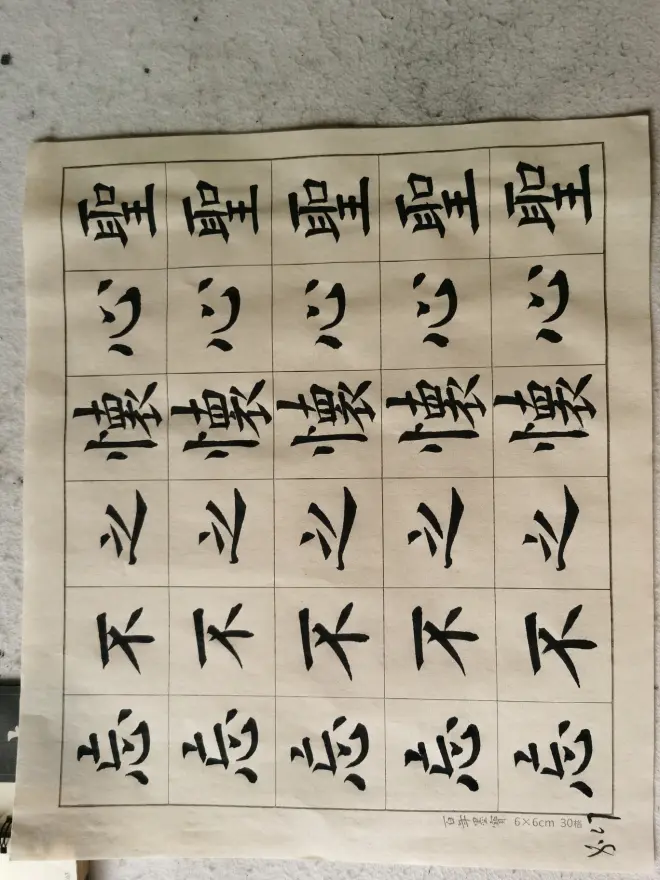 聖聖聖聖聖
心心心心心
懷懷懷懷懷
之之之之之
不不不不不
忘忘忘忘忘
6×6cm 30格